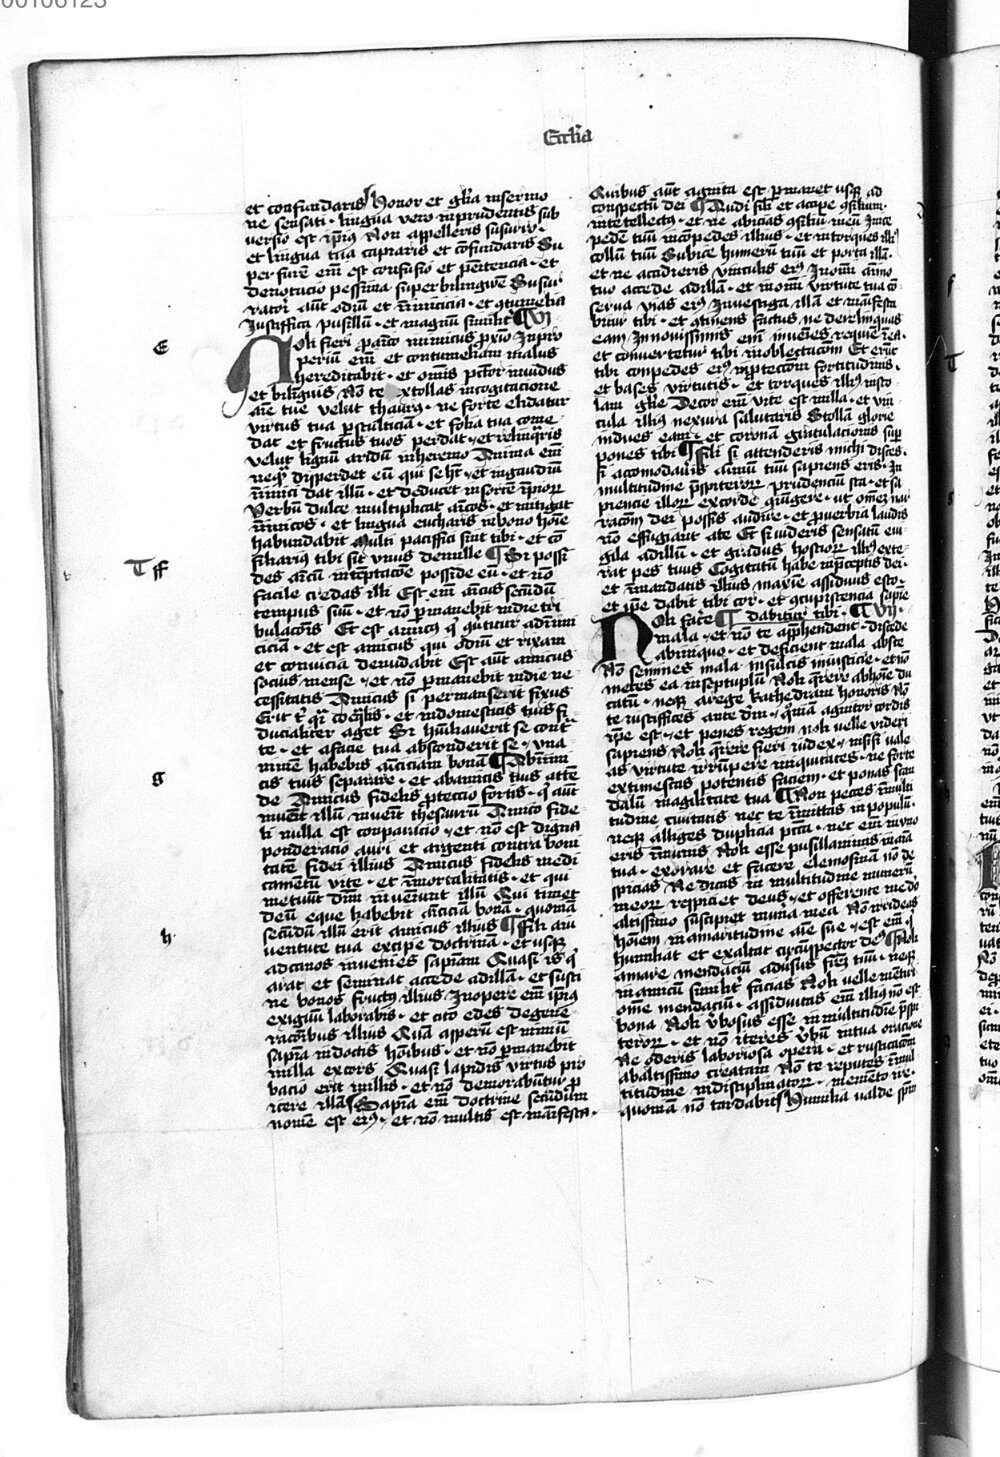 00106123
Eccl'ia
et confundaris Honor et gl'ia in sermo
ne sensati · lingua vero inprudentis sub
versio est ip̄ius Non appelleris susurro ·
et lingua tua capiaris et cōfundaris Su
per furē em̄ est confusio et penitencia · et
denotacio pessima super bilinguē Susur
ratori aūt odiū et inimicicia · et contumelia
Justifica pusillū · et magnū similit' ¶ VI
E
Noli fieri pro amico inimicus proxio Inpro
periū em̄ et contumeliam malus
hereditabit · et om̄is pctōr invidus
et bilinguis Nō te extollas in cogitacione
aīe tue velut thaurus · ne forte elidatur
virtus tua per stulticiā · et folia tua come
dat et fructus tuos perdat · et relinqueris
velut lignū aridū in heremo Anima em̄
nequam disperdet eū qui se h̄t · et in gaudiū
inimici dat illū · et deducet in sortē impiorum
Verbū dulce multiplicat amicos · et mitigat
inimicos · et lingua eucharis in bono hoīe
habundabit Multi pacifici sint tibi · et cō
siliarius tibi sit unus de mille ¶ Si possi
T ff
des amicū in temptacōe posside eū · et nō
facile credas illi Est em̄ amicus secūdū
tempus suū · et nō permanebit in die tri
bulacōis Et est amicus qui convertitur ad inimi
ciciā · et est amicus qui odiū et rixam
et convicia denudabit Est aūt amicus
socius mense · et nō permanebit in die ne
cessitatis Amicus si permanserit fixus
erit t' quasi coequalis · et in domesticis tuis fi
ducialiter aget Si humiliaverit se cont
te · et a facie tua absconderit se · una
nimē habebis amiciciam bonā ¶ Ab inim
g
cis tuis separare · et ab amicis tuis atte
de Amicus fidelis proteccio fortis · qui aūt
invenit illū · invenit thesaurū Amico fide
li nulla est conparacio · et nō est digna
ponderacio auri et argenti contra boni
tatē fidei illius Amicus fidelis medi
camētū vite · et inmortalitatis · et qui
metuūt dn̄m invenīūt illū Qui timet
deū eque habebit amiciciā bonā · quoniā
secūdū illū erit amicus illius ¶ Fili a iu
h
ventute tua excipe doctrinā · et usque
ad canos invenies sapīam Quasi is qui
arat et seminat accede ad illā · et susti
ne bonos fructus illius In opere em̄ ip̄ius
exiguū laborabis · et cito edes de gene
racōibus illius Quā asperū est nimiū
sapīa indoctis hoībus · et nō permanebit
in illa excors Quasi lapidis virtus pro
bacio erit in illis · et nō demorabūtur pro
icere illā Sapīa em̄ doctrine secūdum
nomē est eius · et nō multis est manifesta ·
Quibus aūt agnita est permanet usque ad
conspectū dei ¶ Audi fili et accipe consilium ·
intellectus · et ne abicias consiliū meū Inice
pedē tuū in copedes illius · et in torques illius
collū tuū Subice humerū tuū et porta illā ·
et ne acidieris vinculis eius In omī animo
tuo accede ad illā · et in omī virtute tua cō
serva vias eius Investiga illā et manifesta
bitur tibi · et continens factus ne derelinquas
eam In novissimis em̄ invenies requiē in ea ·
et convertetur tibi in oblectacōem Et erūt
tibi conpedes eius in proteccōem fortitudinis ·
et bases virtutis · et torques illius in sto
lam glīe Decor em̄ vite est in illa · et vin
cula illius nexura salutaris Stollā glorie
indues eam · et coronā gratulacionis super
pones tibi ¶ Fili si attenderis michi disces ·
si acomodaveris animū tuū sapiens eris · In
multitudine prespiterorum prudenciū sta · et sa
piencie illorum ex corde coniungere · ut om̄ez nar
racōm dei possis audire · et proverbia laudis
nō effugiant a te Et si videris sensatū evi
gila ad illū · et gradus hostiorum illius exte
rat pes tuus Cogitatū habe in preceptis dei ·
et in mandatis illius maxime assiduus esto ·
et ip̄e dabit tibi cor · et concupiscencia sapie
Noli facere ¶ dabitur tibi · ¶ VII ·
mala · et nō te apprehendent · discede
ab iniquo · et deficient mala abs te
Nō semines mala in sulcis iniusticie · et nō
metes ea in septuplū Noli querere ab hoīe du
catū · neque a rege kathedram honoris Nō
te iustifices ante deum · quoniā agnitor cordis
ip̄e est · et penes regem noli velle videri
sapiens Noli querere fieri iudex · nisi si vale
as virtute irrūpere iniquitates · ne forte
extimescas potentis faciem · et ponas scan
dalū in agilitate tua ¶ Non pecces in multi
tudine civitatis nec te inmittas in populū ·
neque alliges duplicia pctā · nec em̄ in uno
eris inmunis Noli esse pusillanimis in aīa
tua · exorare et facere elemosinā nō de
spicias Ne dicas in multitudine munerū
meorum respiciet deus · et offerente me deo
altissimo suscipiet munera mea Nō irrideas
hoīem in amaritudine aīe sue · est em̄ qui
humiliat et exaltat circūspector deus ¶ Noli
amare mendaciū adversus fratrem tuū · neque
in amicū similiter facias Noli velle mentiri
om̄e mendaciū · assiduitas em̄ illius nō est
bona Noli verbosus esse in multitudīe prespi
terorum · et nō iteres verbū in tua oracione
Ne oderis laboriosa opera · et rusticacōem
ab altissimo creatam Nō te reputes in mul
titudine indisciplinatorum · memento ire ·
quoniam nō tardabit Humilia valde spm̄